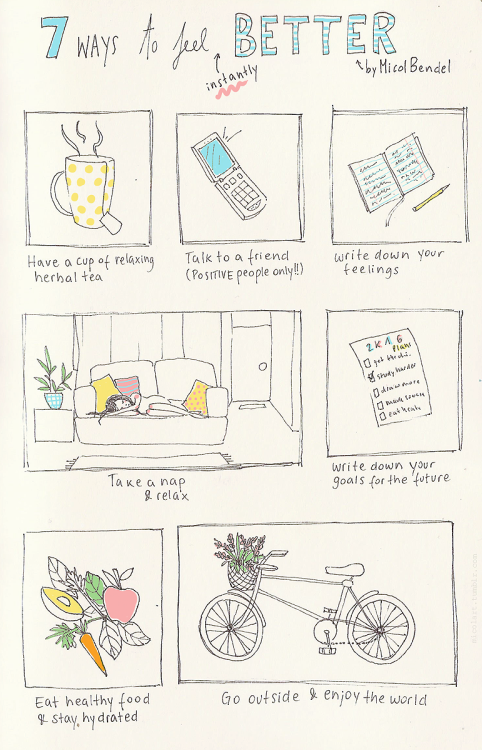 7 WAYS to feel BETTER
instantly
by Micol Bendel
Have a cup of relaxing
herbal tea
Talk to a friend
(POSITIVE people only!!)
Write down your
feelings
2K16
Plans
study harder
draw more
Take a nap
& relax
Write down your
goals for the future
Eat healthy food
& stay hydrated
Go outside & enjoy the world